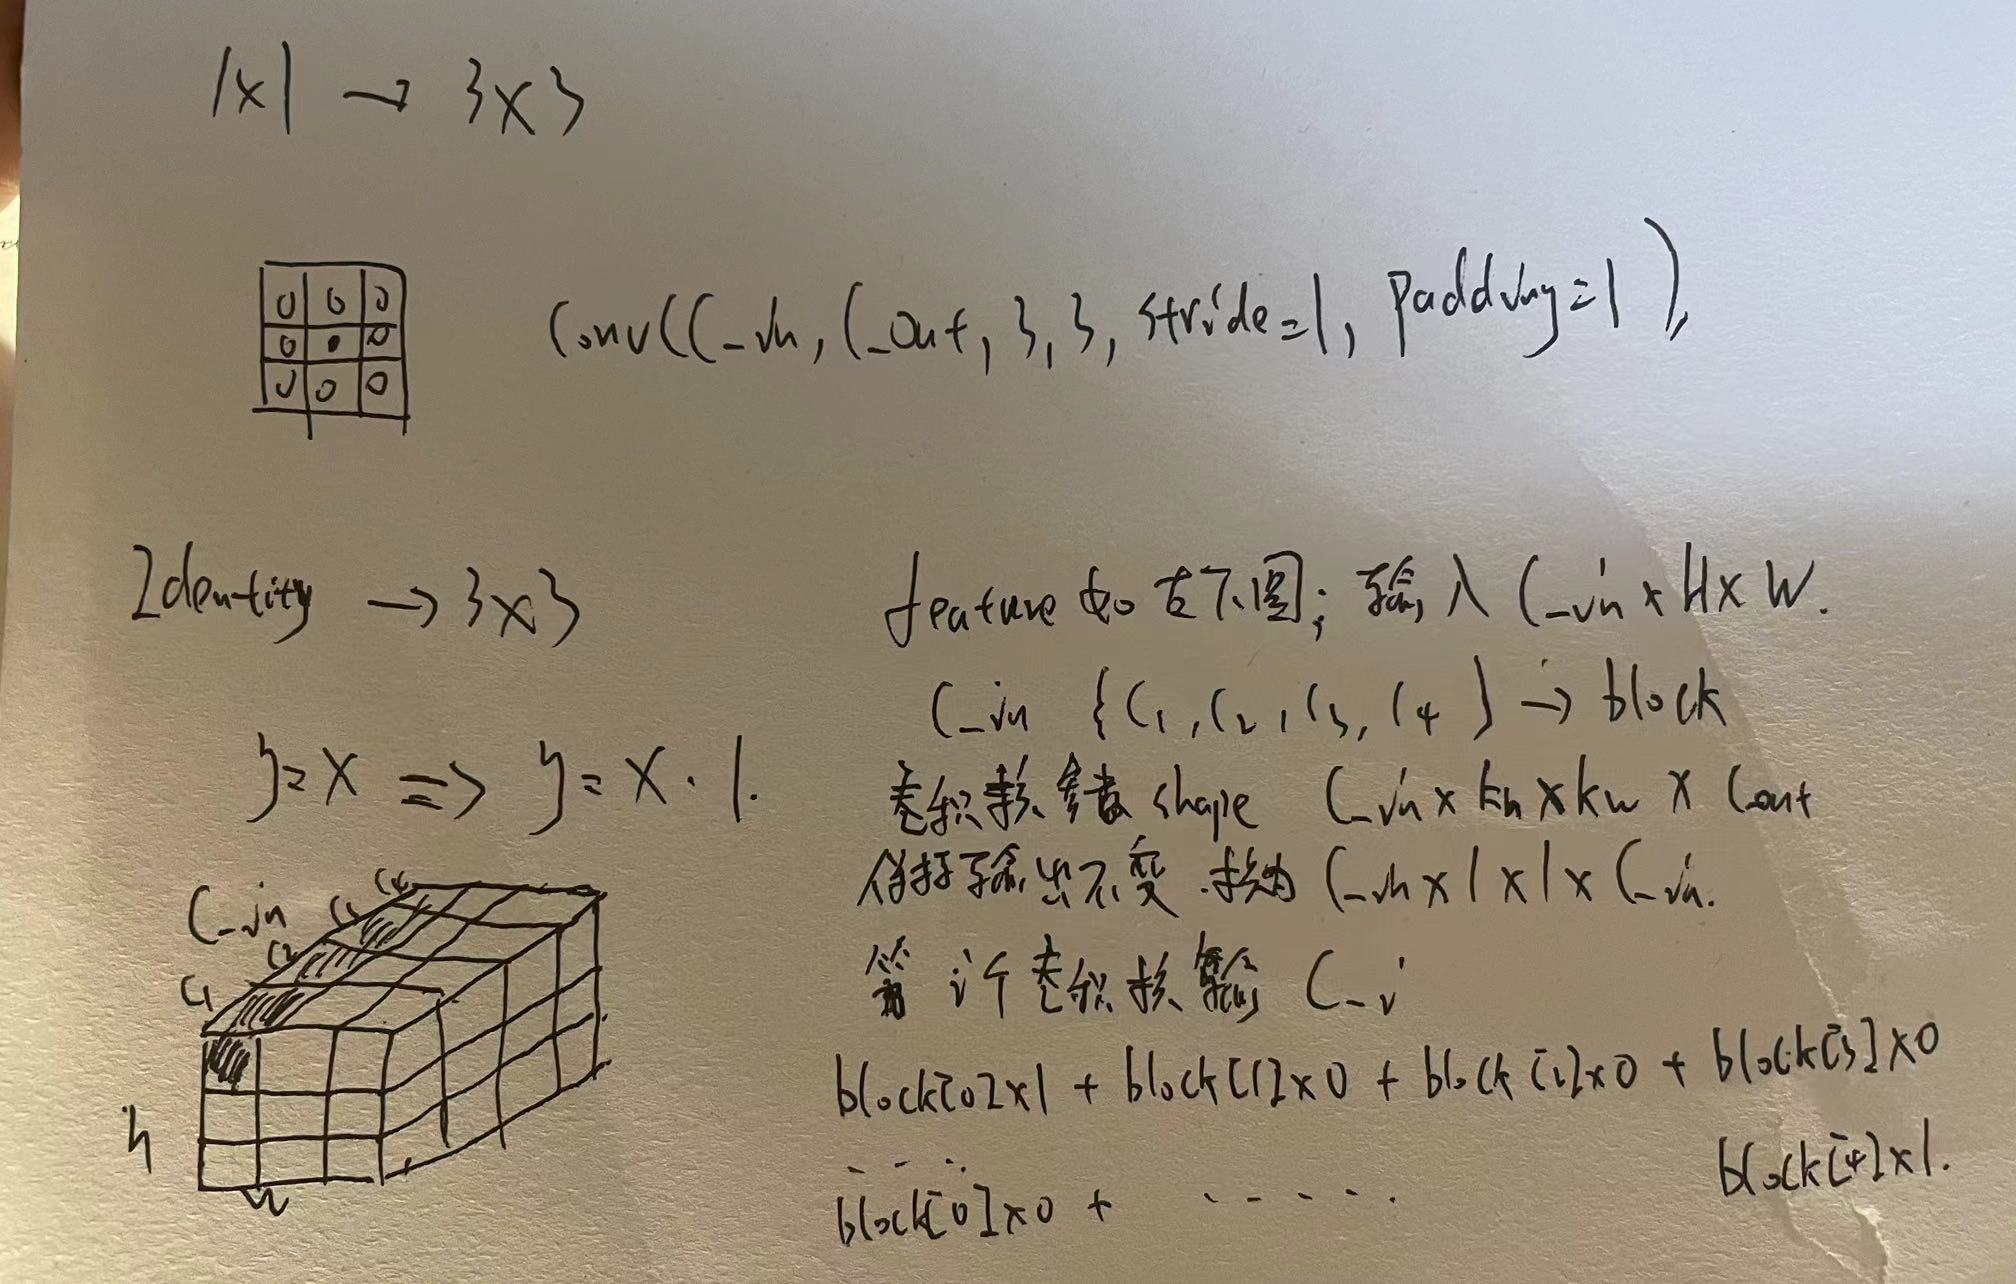 1x1 → 3x3
0 0 0
0 • 0
0 0 0
Conv(C_in, C_out, 3, 3, stride=1, padding=1),
Identity → 3x3
y=x => y=x·1.
C_in
C1
C2
C3
C4
h
w
feature如左下图; 输入 C_in x H x W.
C_in {C1, C2, C3, C4} → block
卷积核参数 shape C_in x kh x kw x Cout
保持输出不变. 核为 C_in x 1 x 1 x C_in.
第i个卷积核输 C_i
block[0]x1 + block[1]x0 + block[2]x0 + block[3]x0
.....
block[0]x0 + ...... block[4]x1.